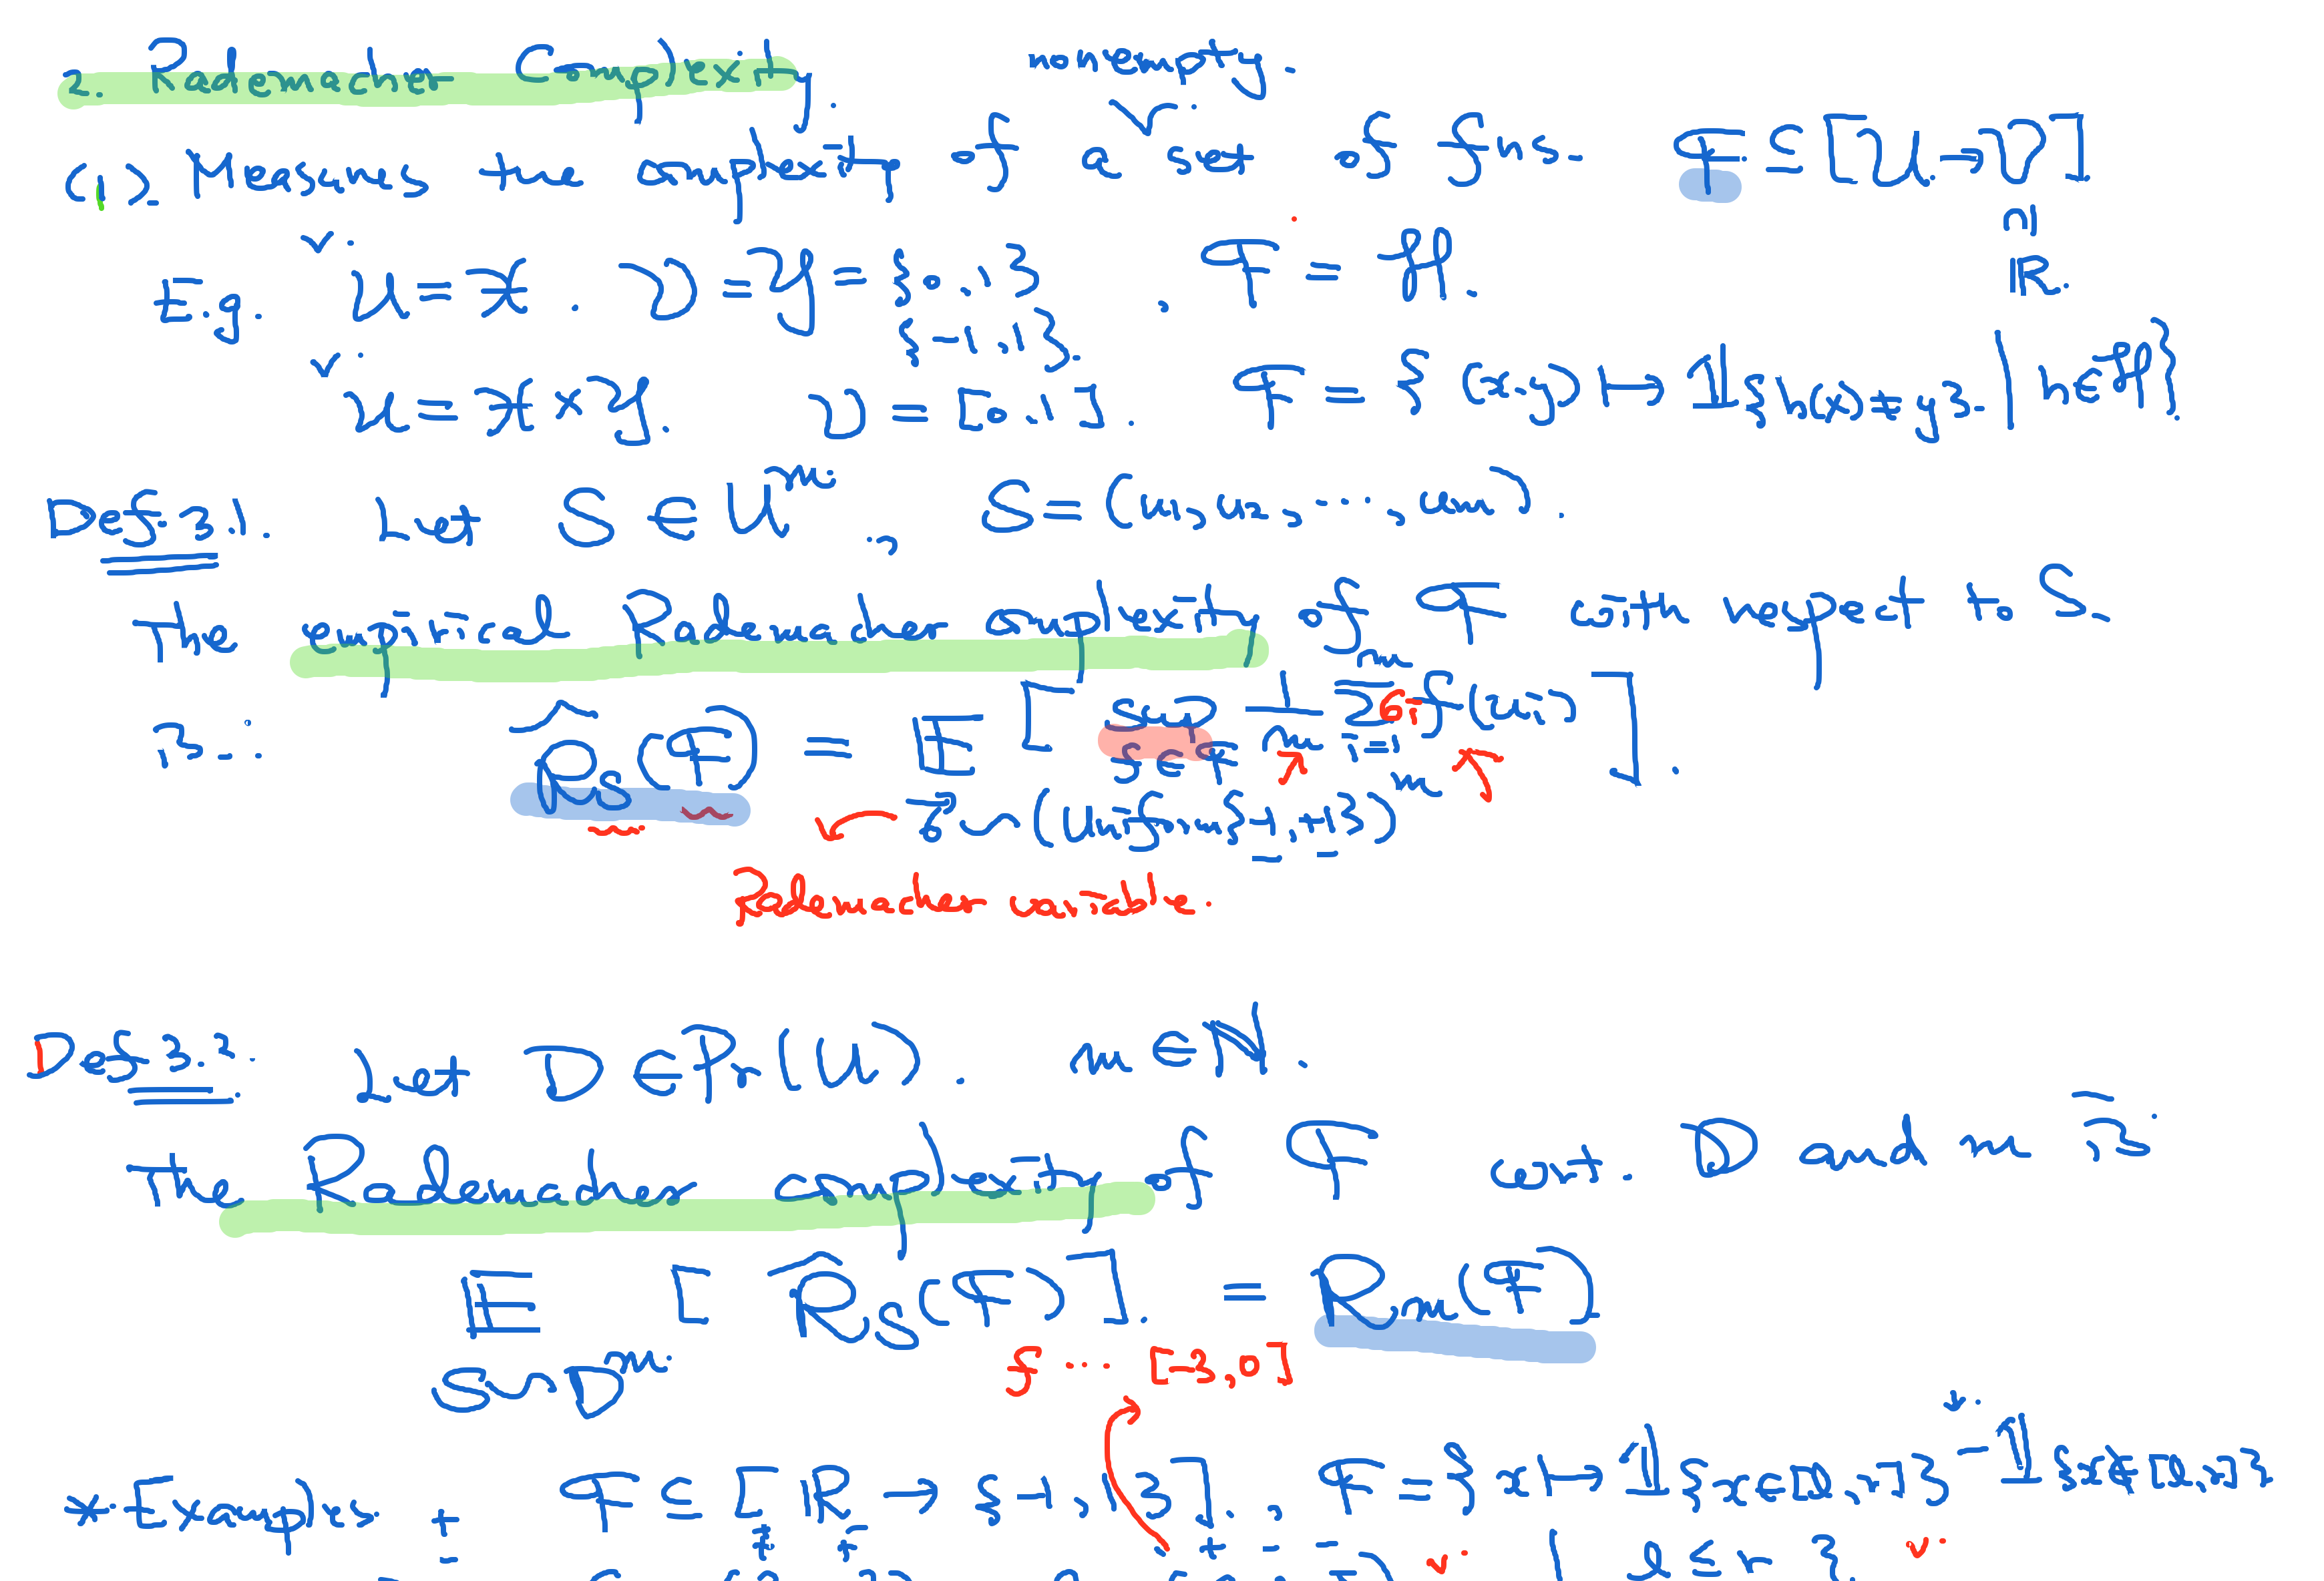 2. Rademacher Complexity.
nonempty.
(1). Measures the complexity of a set of fns. F ⊆ [U → V]
⊆
ℝ.
E.g. U = X. V = Y = {0, 1}, F = H.
{-1, 1}.
U = X × Y. V = [0, 1]. F = { (x, y) ↦ 𝟙{h(x) ≠ y}. | h ∈ H}.
Def 3.1. Let S ∈ U^m., S = (u1, u2, ..., um).
The empirical Rademacher complexity of F with respect to S.
is: R̂_S(F) = E [ sup_{f∈F} 1/m Σ_{i=1}^m σi f(ui) ].
σ̄ ~ (Unif{-1, +1})^m
Rademacher variable.
Def 3.2. Let D ∈ Pr(U). m ∈ ℕ.
The Rademacher complexity of F wrt. D and m is.
E [ R̂_S(F) ]. = R_m(F)
S ~ D^m.
f ... [-3, 0]
* Examples. F ⊆ [ℝ → {-1, 1}]. : F = { x ↦ 𝟙{x∈[l, r]} - 𝟙{x∉[l, r]}
| l ≤ r }.